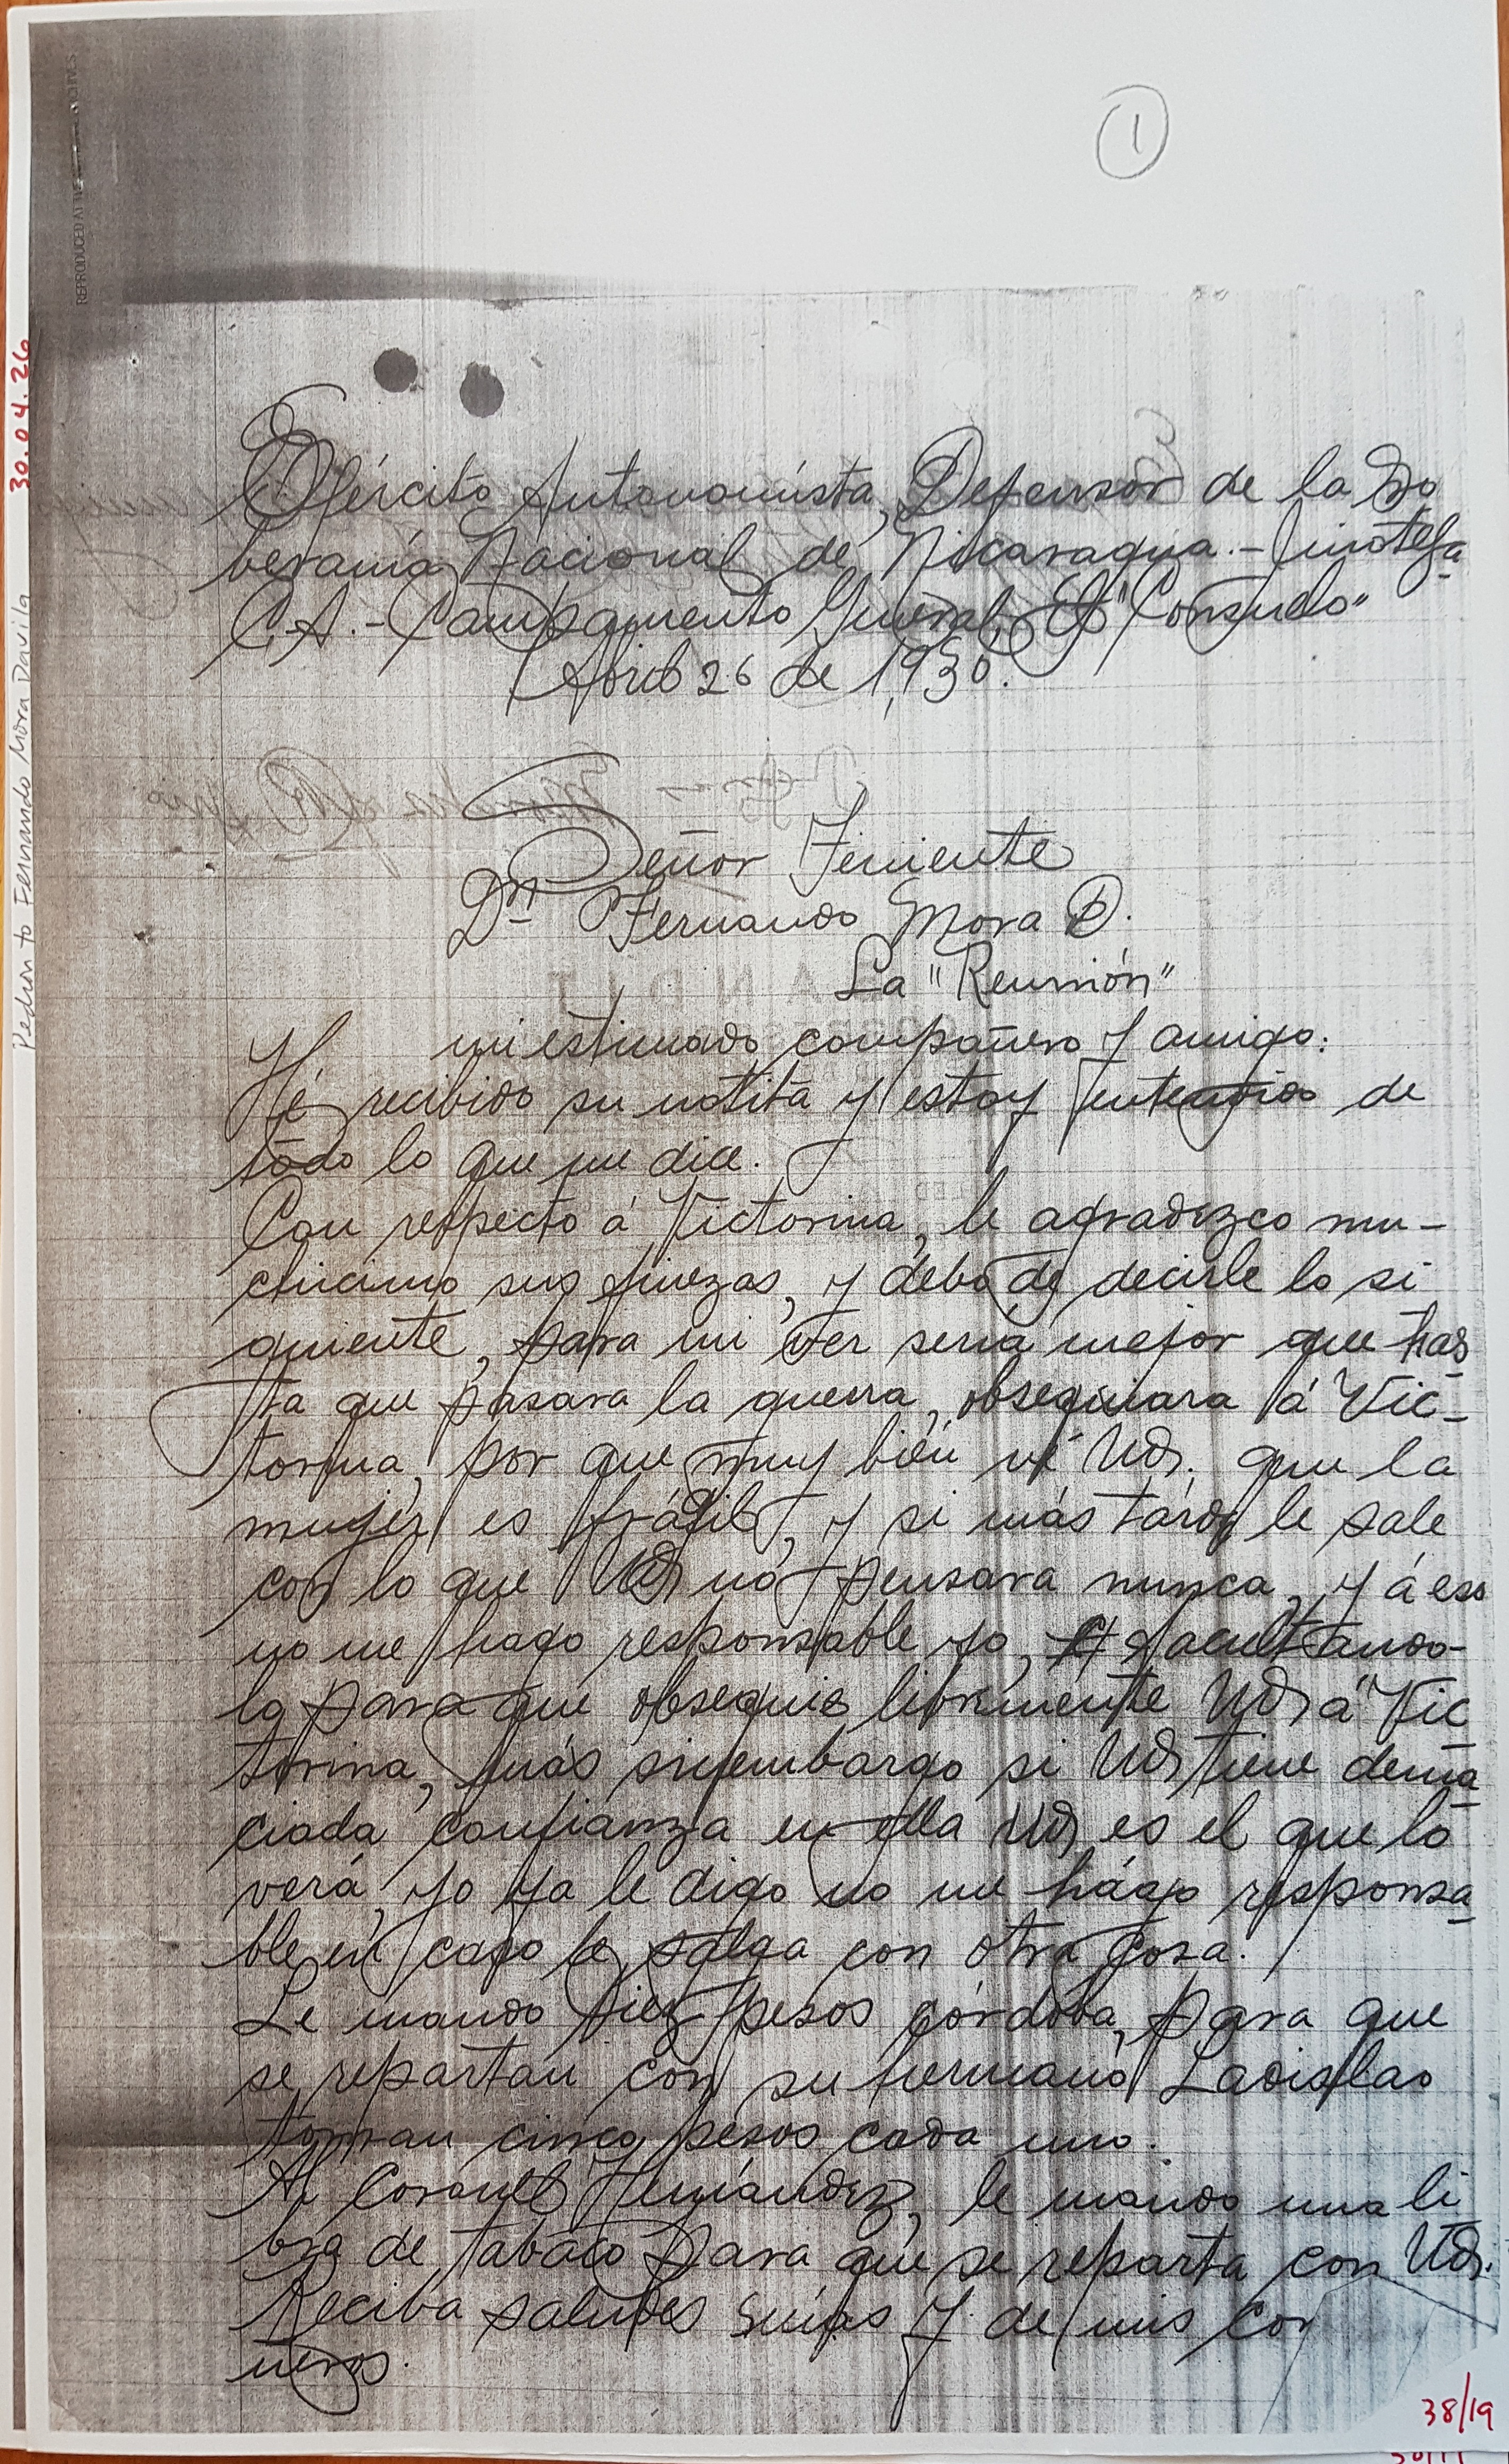 1
REPRODUCED AT THE NATIONAL ARCHIVES
30.04.26
Pedron to Fernando Mora Davila
Ejército Autonomista, Defensor de la So
beranía Nacional de Nicaragua.- Jinotega
C.A.- Campamento General, El "Consuelo"
Abril 26 de 1,930.
Señor Teniente
Dn Fernando Mora D.
La "Reunión"
mi estimado compañero y amigo:
Hé recibido su notita y estoy entendido de
todo lo que me dice.
Con respecto á Victorina, le agradezco mu-
chicimo sus finezas, y debo de decirle lo si
guiente, para mi ver sería mejor que has
ta que pasara la guerra, obsequiara á Vic-
torina, por que muy bién vé Ud. que la
mujér es frágil, y si más tárde le sale
con lo que Ud nó pensara nunca, y á eso
no me hago responsable yo, facultando-
lo para que obsequie libremente Ud á Vic
torina, más sinembargo si Ud tiene dema
ciada confianza en ella Ud es el que lo
verá, yo ya le digo no me hágo responsa
ble en caso le salga con otra cosa.
Le mando diez pesos córdoba, para que
se repartan con su hermano Ladislao
toman cinco pesos cada uno.
Al Coronel Hernández, le mando una li
bra de tabaco para que se reparta con Ud.
Reciba saludes mías y de mis com
neros.
38/19